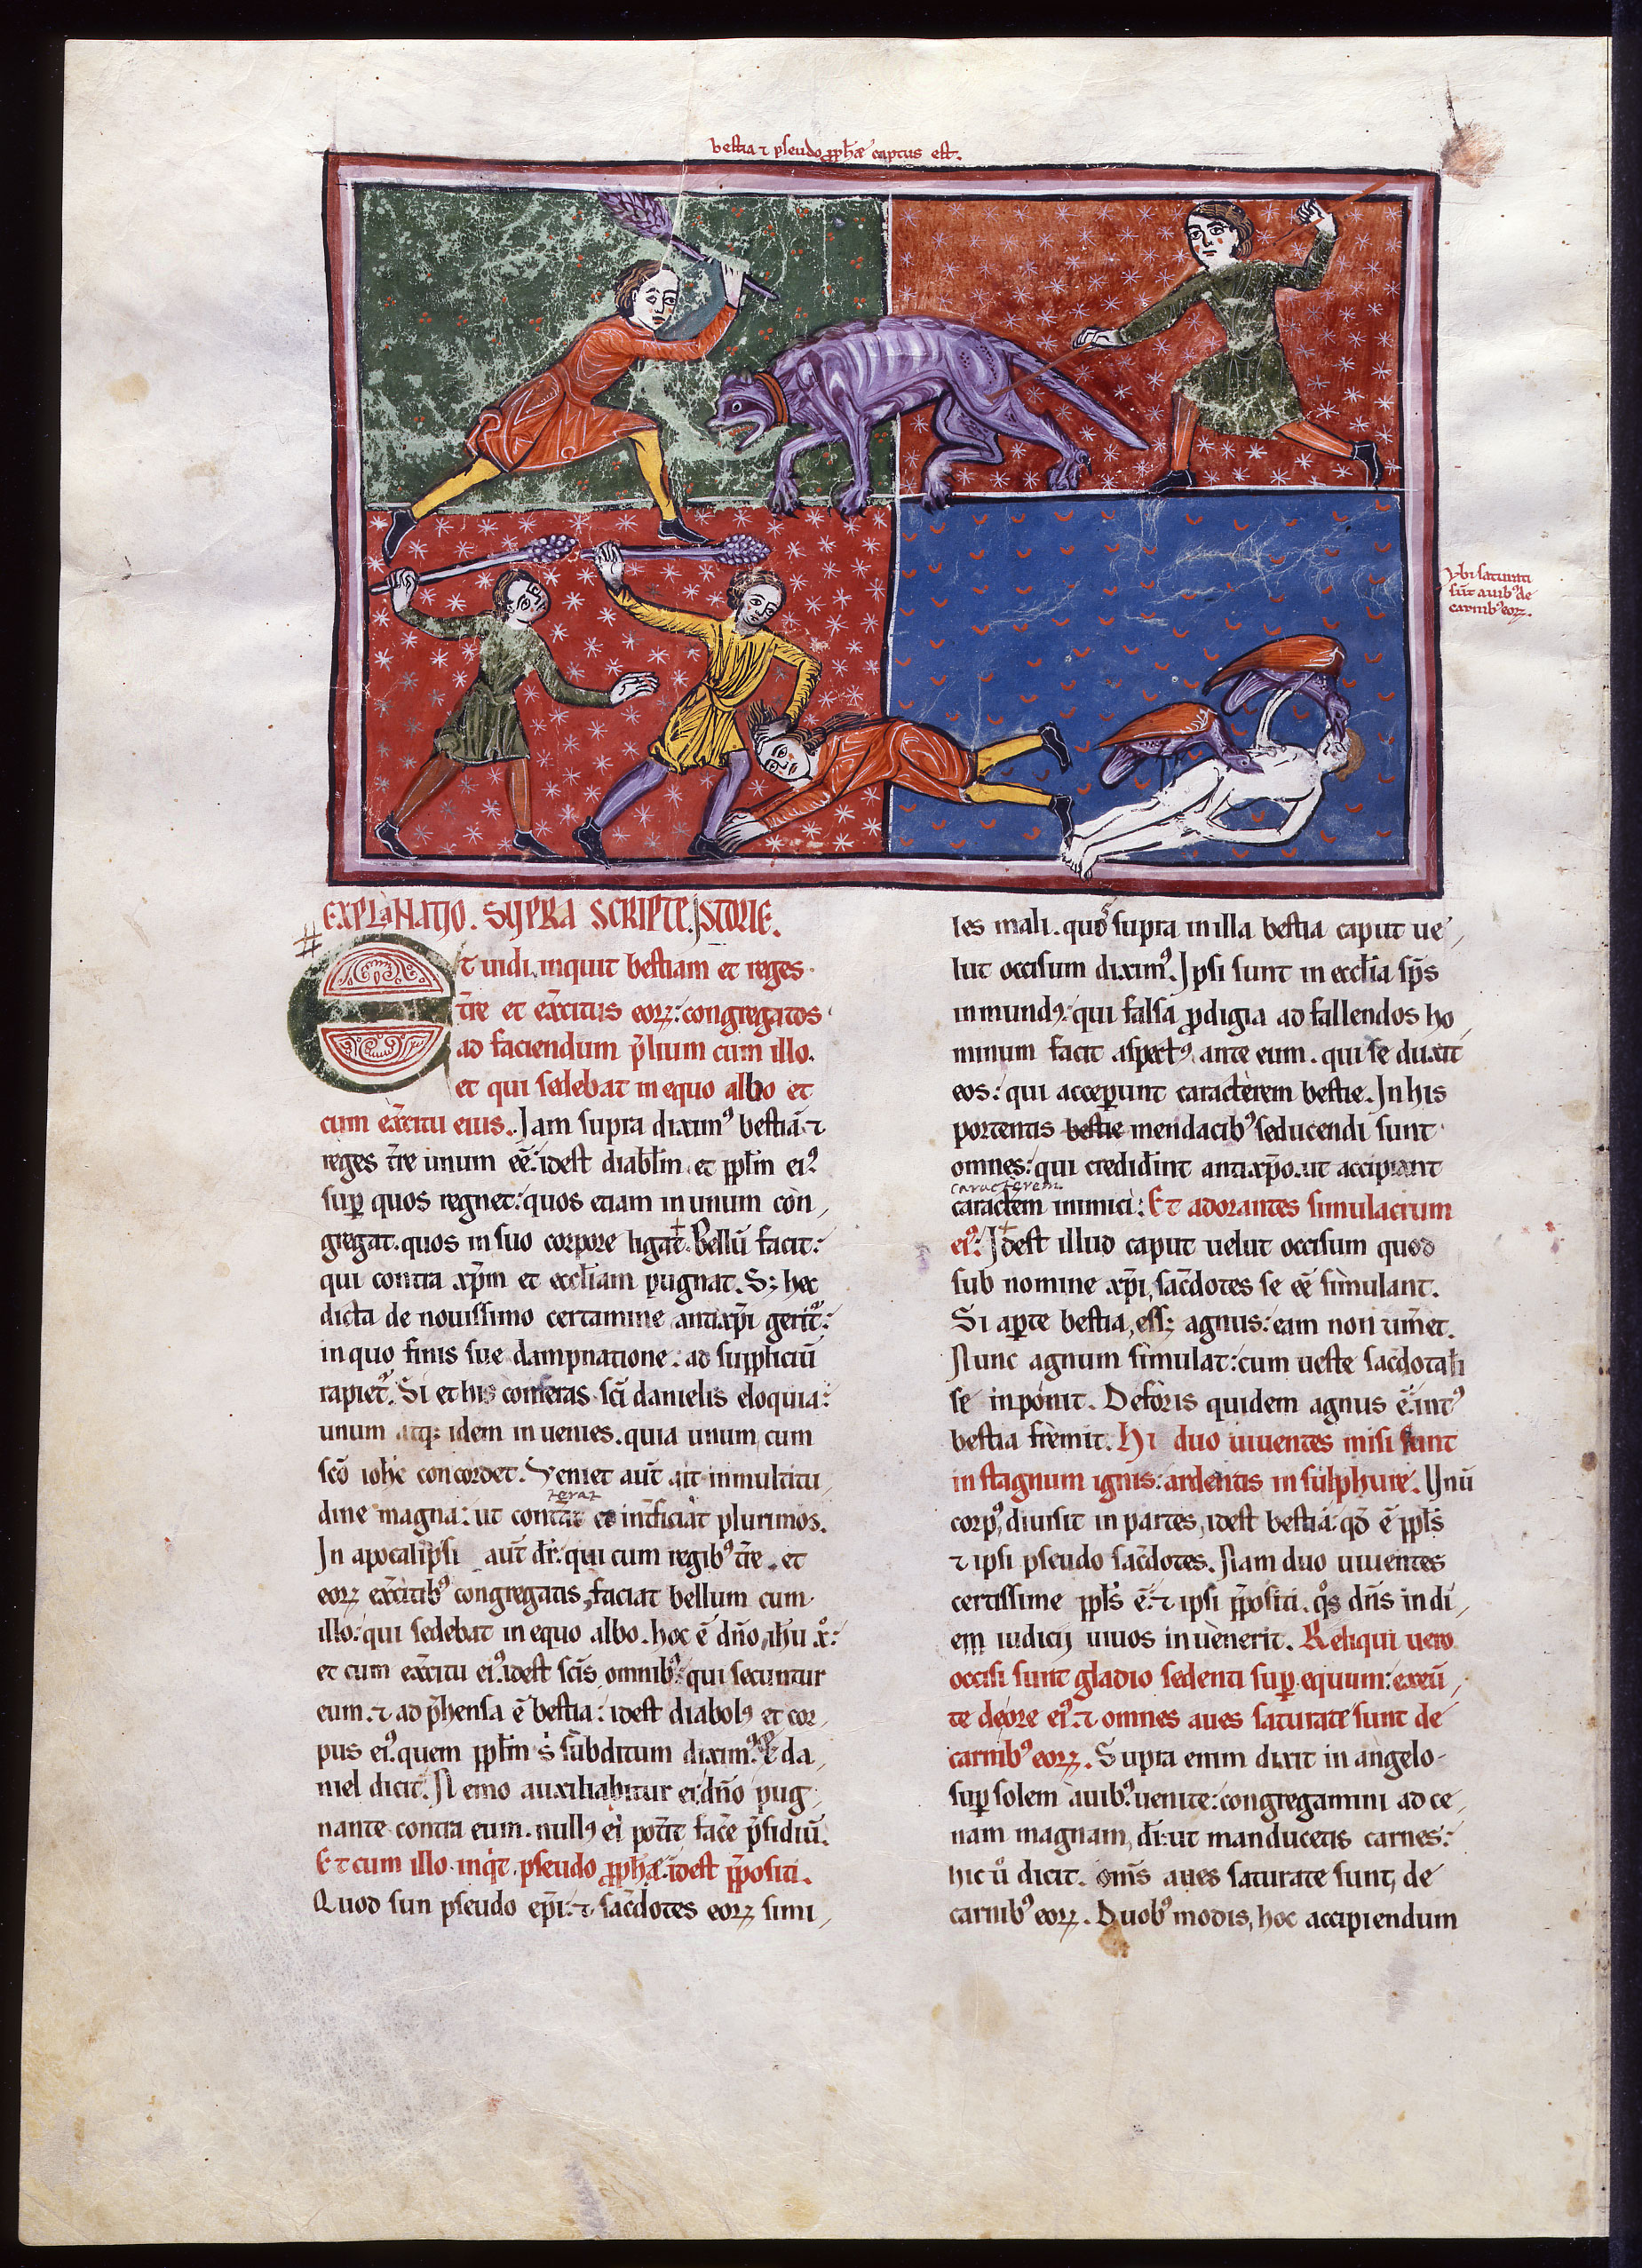 bestia ⁊ pseudo pph̄æ captus est.
ybi saturati
sūt auibꝰ de
carnibꝰ eoꝝ.
EXPLANATIO. SUPRA SCRIPTE ISTORIE.
Et uidi, inquit bestiam et reges
t̄re et ex̄citus eoꝝ: congregatos
ad faciendum p̄lium cum illo.
et qui sedebat in equo albo et
cum ex̄citu eius. Iam supra diximꝰ bestiā ⁊
reges t̄re unum eē: idest diabl̄m et ppl̄m eiꝰ
suꝑ quos regnet: quos etiam in unum con,
gregat. quos in suo corpore ligat. Bellū facit:
qui contra xp̄m et eccl̄iam pugnat. Sꝫ hec
dicta de nouissimo certamine antixp̄i gerit᷑:
in quo finis sue dampnatione: ad supliciū
rapiet᷑. Si et his conferas sc̄i danielis eloquia:
unum atqꝫ idem inuenies. quia unum cum
sc̄o ioh̄e concordet. Ueniet aūt ait in multitu,
terat
dine magna: ut et int̄ficiat plurimos.
In apocalipsi aūt dr̄: qui cum regibꝰ t̄re et
eoꝝ ex̄citibꝰ congregatis, faciat bellum cum
illo: qui sedebat in equo albo. hoc ē dn̄o ih̄u x̄:
et cum ex̄citu eiꝰ. idest sc̄is omnibꝰ: qui secuntur
eum. ⁊ adp̄hensa ē bestia: idest diabolꝰ et cor,
pus eiꝰ. quem ppl̄m s̄ subditum diximꝰ. da,
niel dicit. Nemo auxiliabitur ei: dn̄o pug,
nante contra eum. nullꝰ ei pot̄it fac̄e p̄sidiū.
Et cum illo inqͥt pseudo pph̄æ. idest p̄positi.
Quod sun pseudo ep̄i: ⁊ sac̄dotes eoꝝ simi,
les mali. quos supra in illa bestia caput ue,
lut occisum diximꝰ. Ipsi sunt in eccl̄ia sp̄s
inmundꝰ: qui falsa ꝓdigia ad fallendos ho,
minum facit aspectꝰ ante eum. qui seduxit
eos: qui acceꝑunt caracterem bestie. In his
portentis bestie mendacibꝰ seducendi sunt
omnes: qui credid̄int antixp̄o. ut accipiant
caracterem
caractem inimici: Et adorantes simulacrum
eiꝰ: Idest illud caput uelut occisum quod
sub nomine xp̄i, sac̄dotes se eē simulant.
Si aꝑte bestia, essꝫ agnus: eam non tim̄et.
Nunc agnum simulat: cum ueste sac̄dotali
se inponit. Deforis quidem agnus ē: intꝰ
bestia fremit. Hi duo uiuentes misi sunt
in stagnum ignis: ardentis in sulphure. Unū
corpꝰ, diuisit in partes, idest bestiā: qd̄ ē ppl̄s
⁊ ipsi pseudo sac̄dotes. Nam duo uiuentes
certissime ppl̄s ē: ⁊ ipsi p̄positi. qͦs dn̄s in di,
em iudicij uiuos inuenerit. Reliqui uero
occisi sunt gladio sedenti suꝑ equum: exeū,
te de ore eiꝰ. ⁊ omnes aues saturate sunt de
carnibꝰ eoꝝ. Supra enim dixit in angelo
suꝑ solem auibꝰ: uenite: congregamini ad ce,
nam magnam, dī: ut manducetis carnes:
hic uͦ dicit. om̄s aues saturate sunt, de
carnibꝰ eoꝝ. Duobꝰ modis, hoc accipiendum